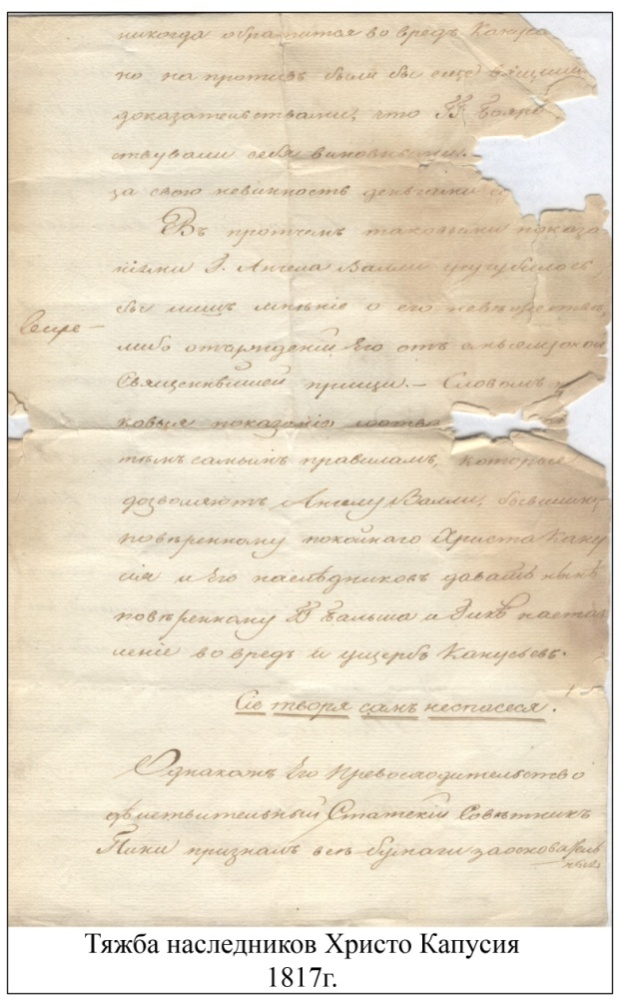 никогда обратится во вредъ Капуса
но на противъ были бы еще вящими
доказательствами, что ГГ Бояре
ствували себя виновными
за свою невинность деньгами
Въ протчемъ таковыми показа
ніями Г. Ангела Валли усугубилось
бы лишь мнѣніе о его невѣжествѣ,
либо отчужденій Его отъ
Священнѣйшей присяги. — Словомъ
ковыя показанія
тѣмъ самымъ правиламъ, которые
дозволяютъ Ангелу Валли, бывшему
повѣренному покойнаго Христа Капу
сія и Его наслѣдниковъ давать нынѣ
повѣренному ГГ Бальша и настав
леніе во вредъ и ущербъ Капусьевъ.
Сіе творя самъ неспасеся.
Однакожъ Его Превосходительство
дѣйствительный Статскій Совѣтникъ
Пини призналъ всѣ бумаги за основатель
ныя
Тяжба наследников Христо Капусия
1817г.